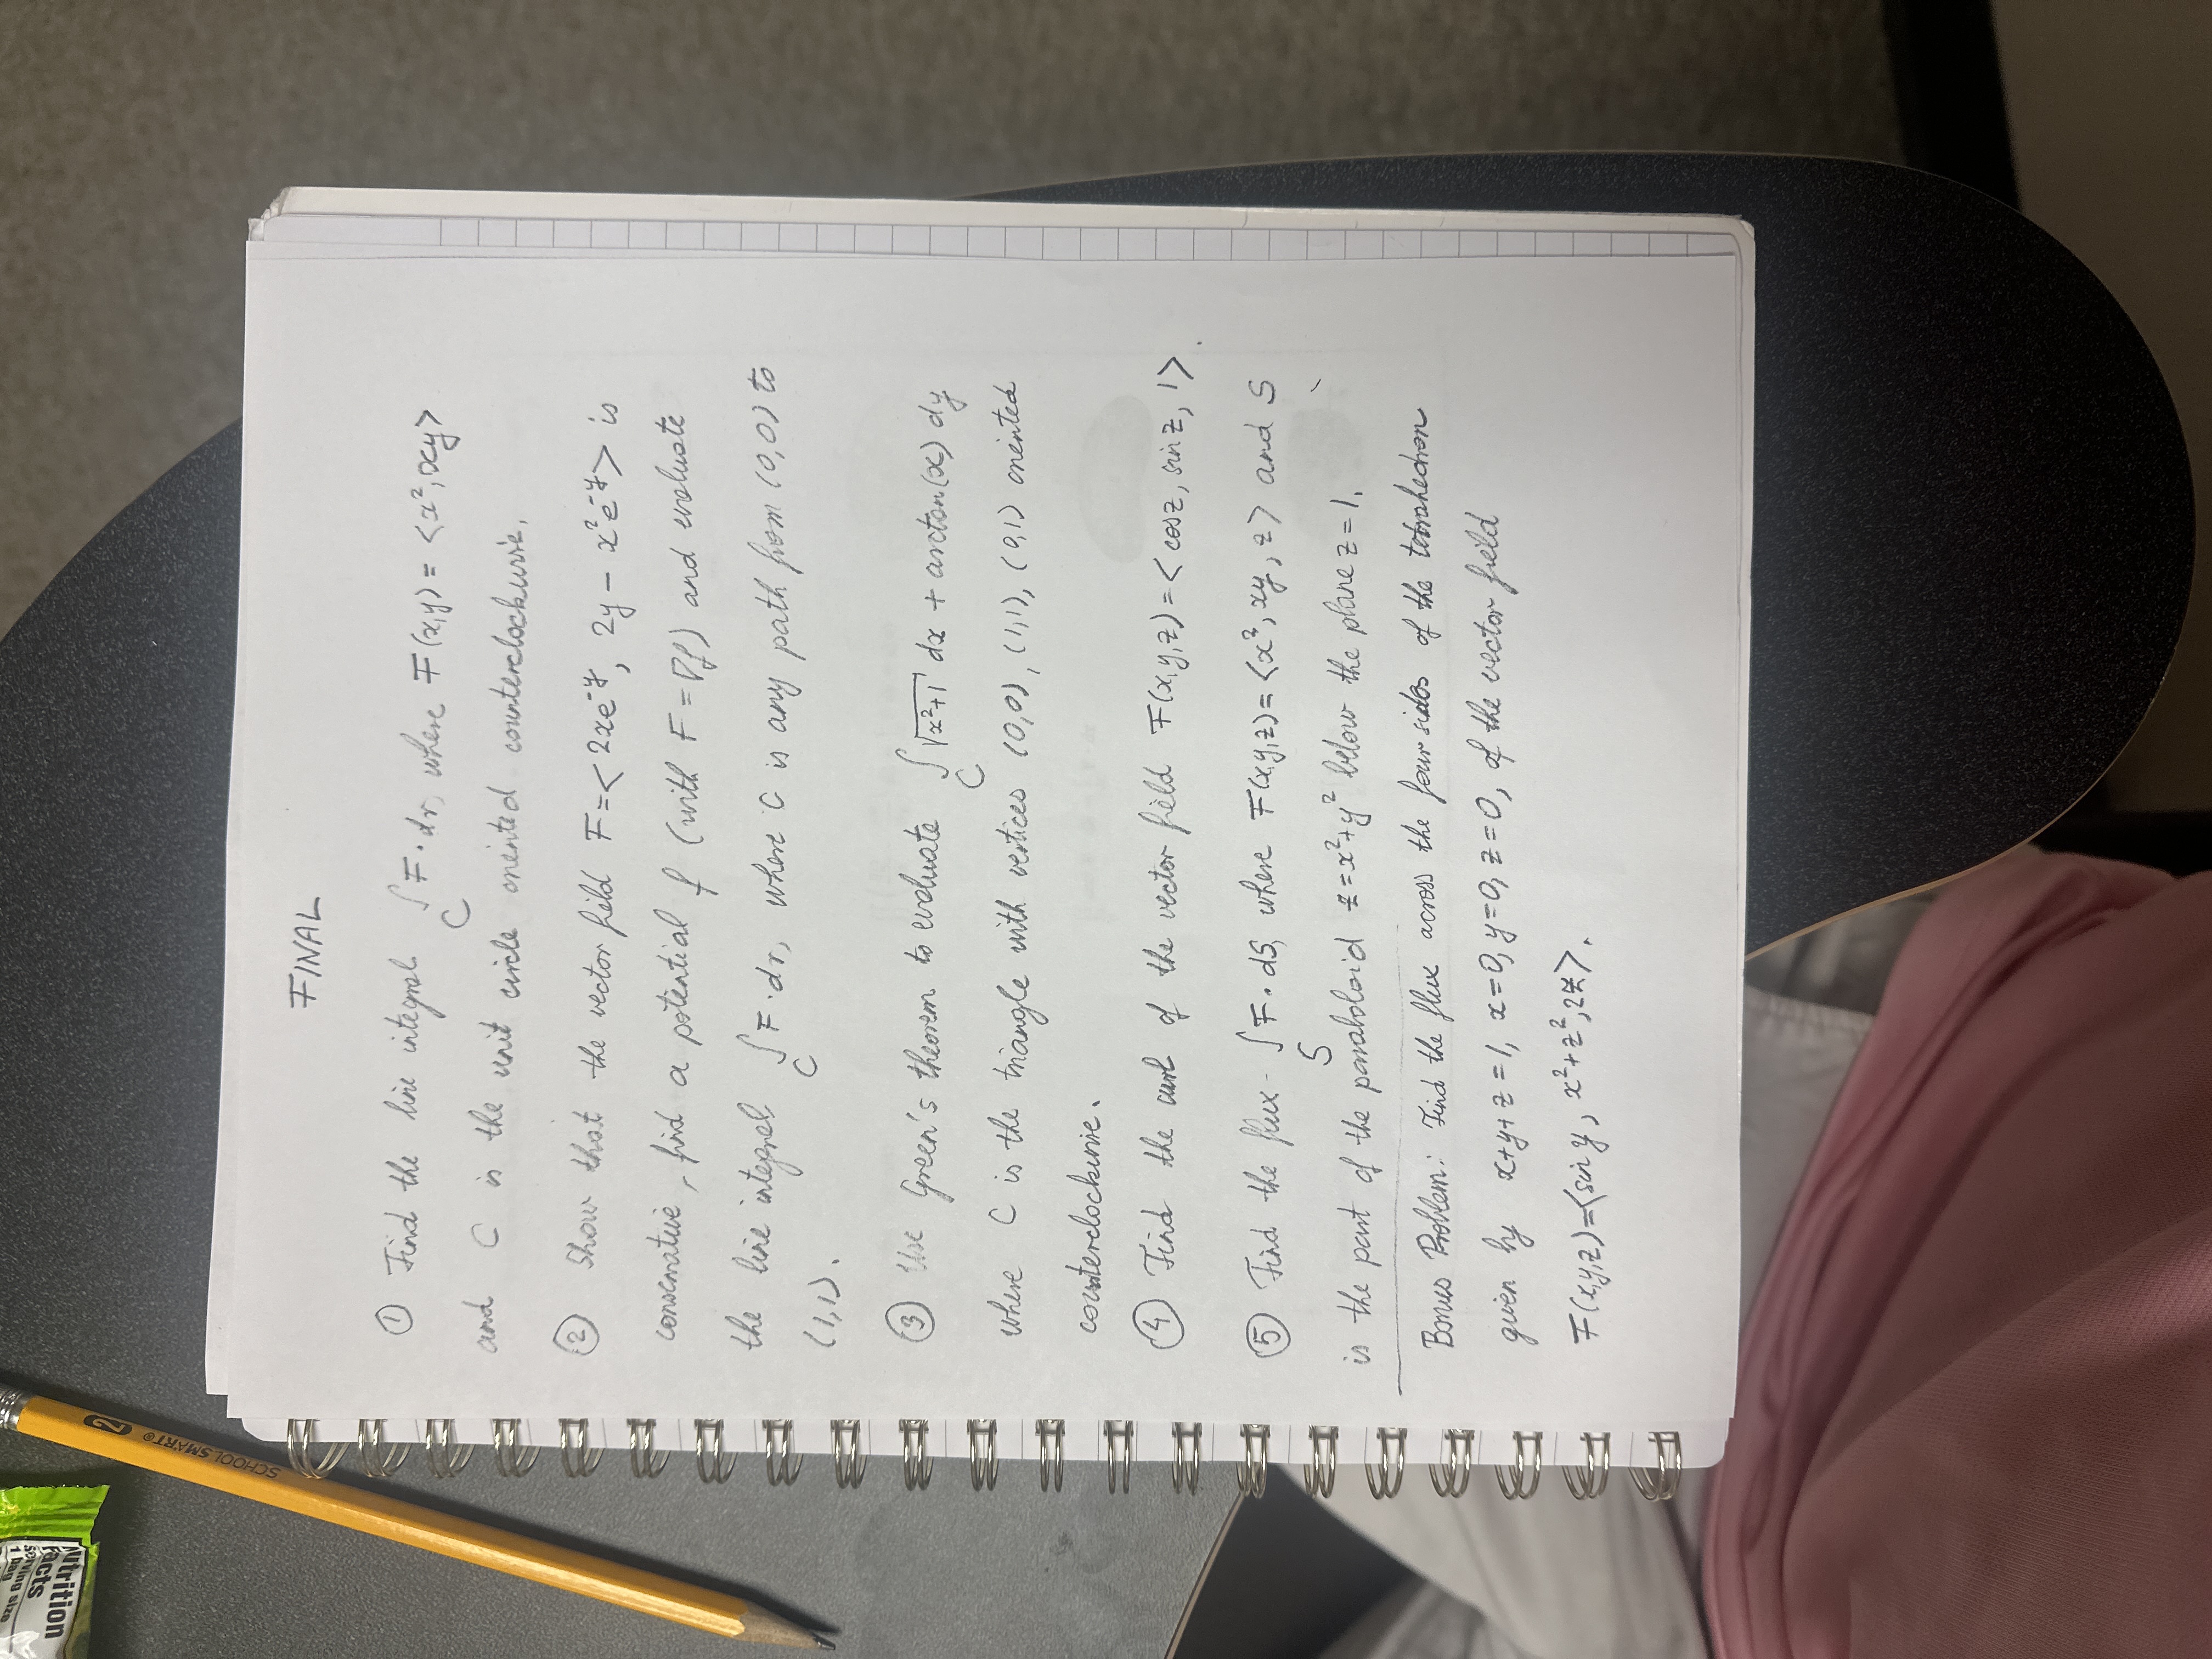 FINAL
① Find the line integral ∫_C F·dr, where F(x,y) = <x², xy>
and C is the unit circle oriented counterclockwise.
② Show that the vector field F = <2xe^-y, 2y - x²e^-y> is
conservative, find a potential f (with F = ∇f) and evaluate
the line integral ∫_C F·dr, where C is any path from (0,0) to
(1,1).
③ Use Green's theorem to evaluate ∫_C √(x²+1) dx + arctan(x) dy
where C is the triangle with vertices (0,0), (1,1), (0,1) oriented
counterclockwise.
④ Find the curl of the vector field F(x,y,z) = <cosz, sinz, 1>.
⑤ Find the flux ∫_S F·dS, where F(x,y,z) = <x³, xy, z> and S
is the part of the paraboloid z = x²+y² below the plane z=1.
Bonus Problem: Find the flux across the four sides of the tetrahedron
given by x+y+z=1, x=0, y=0, z=0, of the vector field
F(x,y,z) = <sin y, x²+z², 2z>.
2
SCHOOLSMART®
Nutrition
Facts
1 bag
Serving size